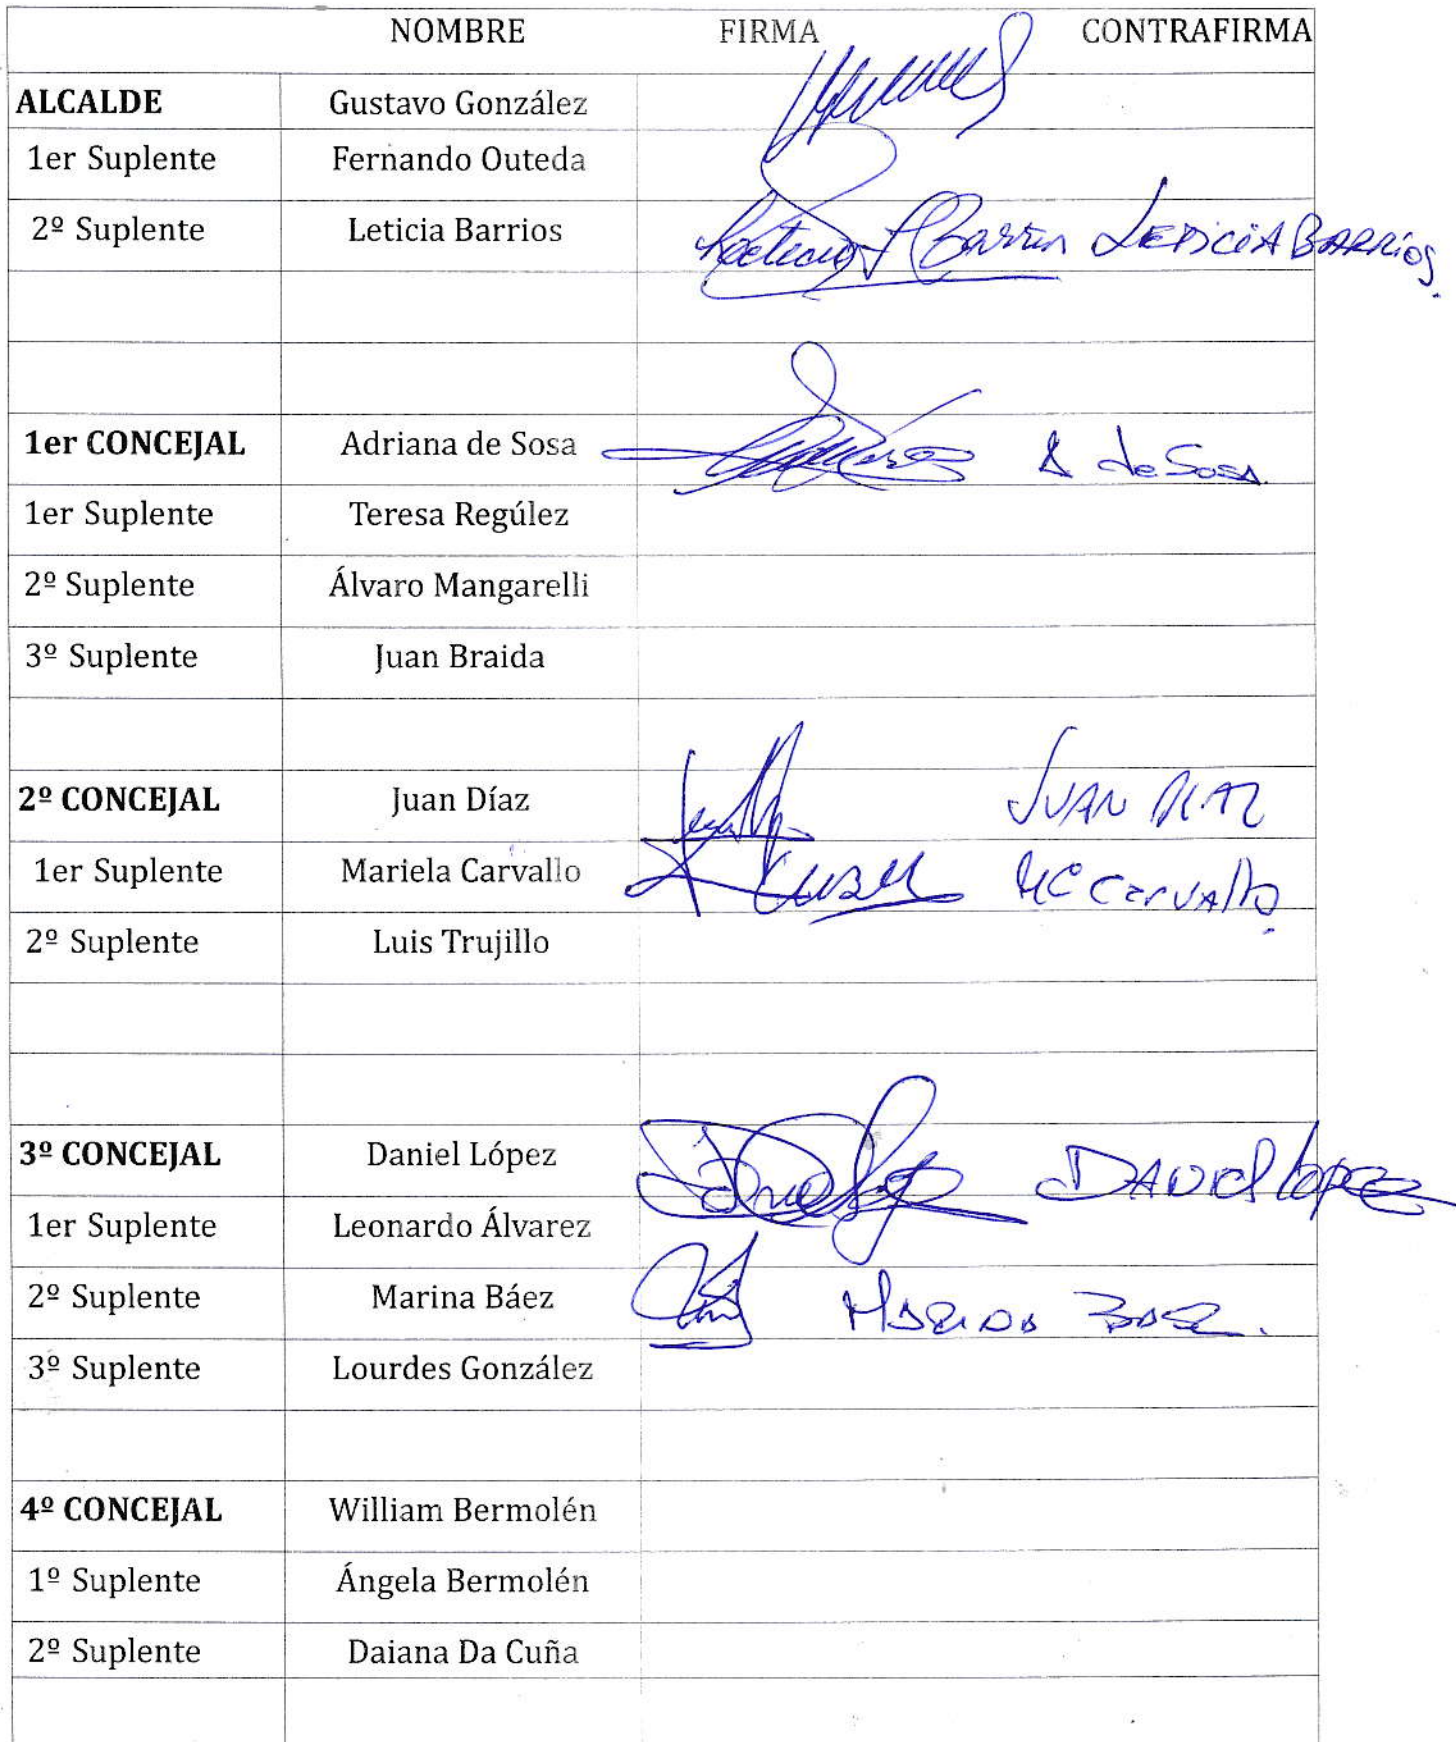 NOMBRE FIRMA CONTRAFIRMA
ALCALDE Gustavo González
1er Suplente Fernando Outeda
2º Suplente Leticia Barrios LETICIA BARRIOS.
1er CONCEJAL Adriana de Sosa A de Sosa.
1er Suplente Teresa Regúlez
2º Suplente Álvaro Mangarelli
3º Suplente Juan Braida
2º CONCEJAL Juan Díaz JUAN DIAZ
1er Suplente Mariela Carvallo MC Carvallo.
2º Suplente Luis Trujillo
3º CONCEJAL Daniel López DANIEL López
1er Suplente Leonardo Álvarez
2º Suplente Marina Báez MARINA BAEZ.
3º Suplente Lourdes González
4º CONCEJAL William Bermolén
1º Suplente Ángela Bermolén
2º Suplente Daiana Da Cuña